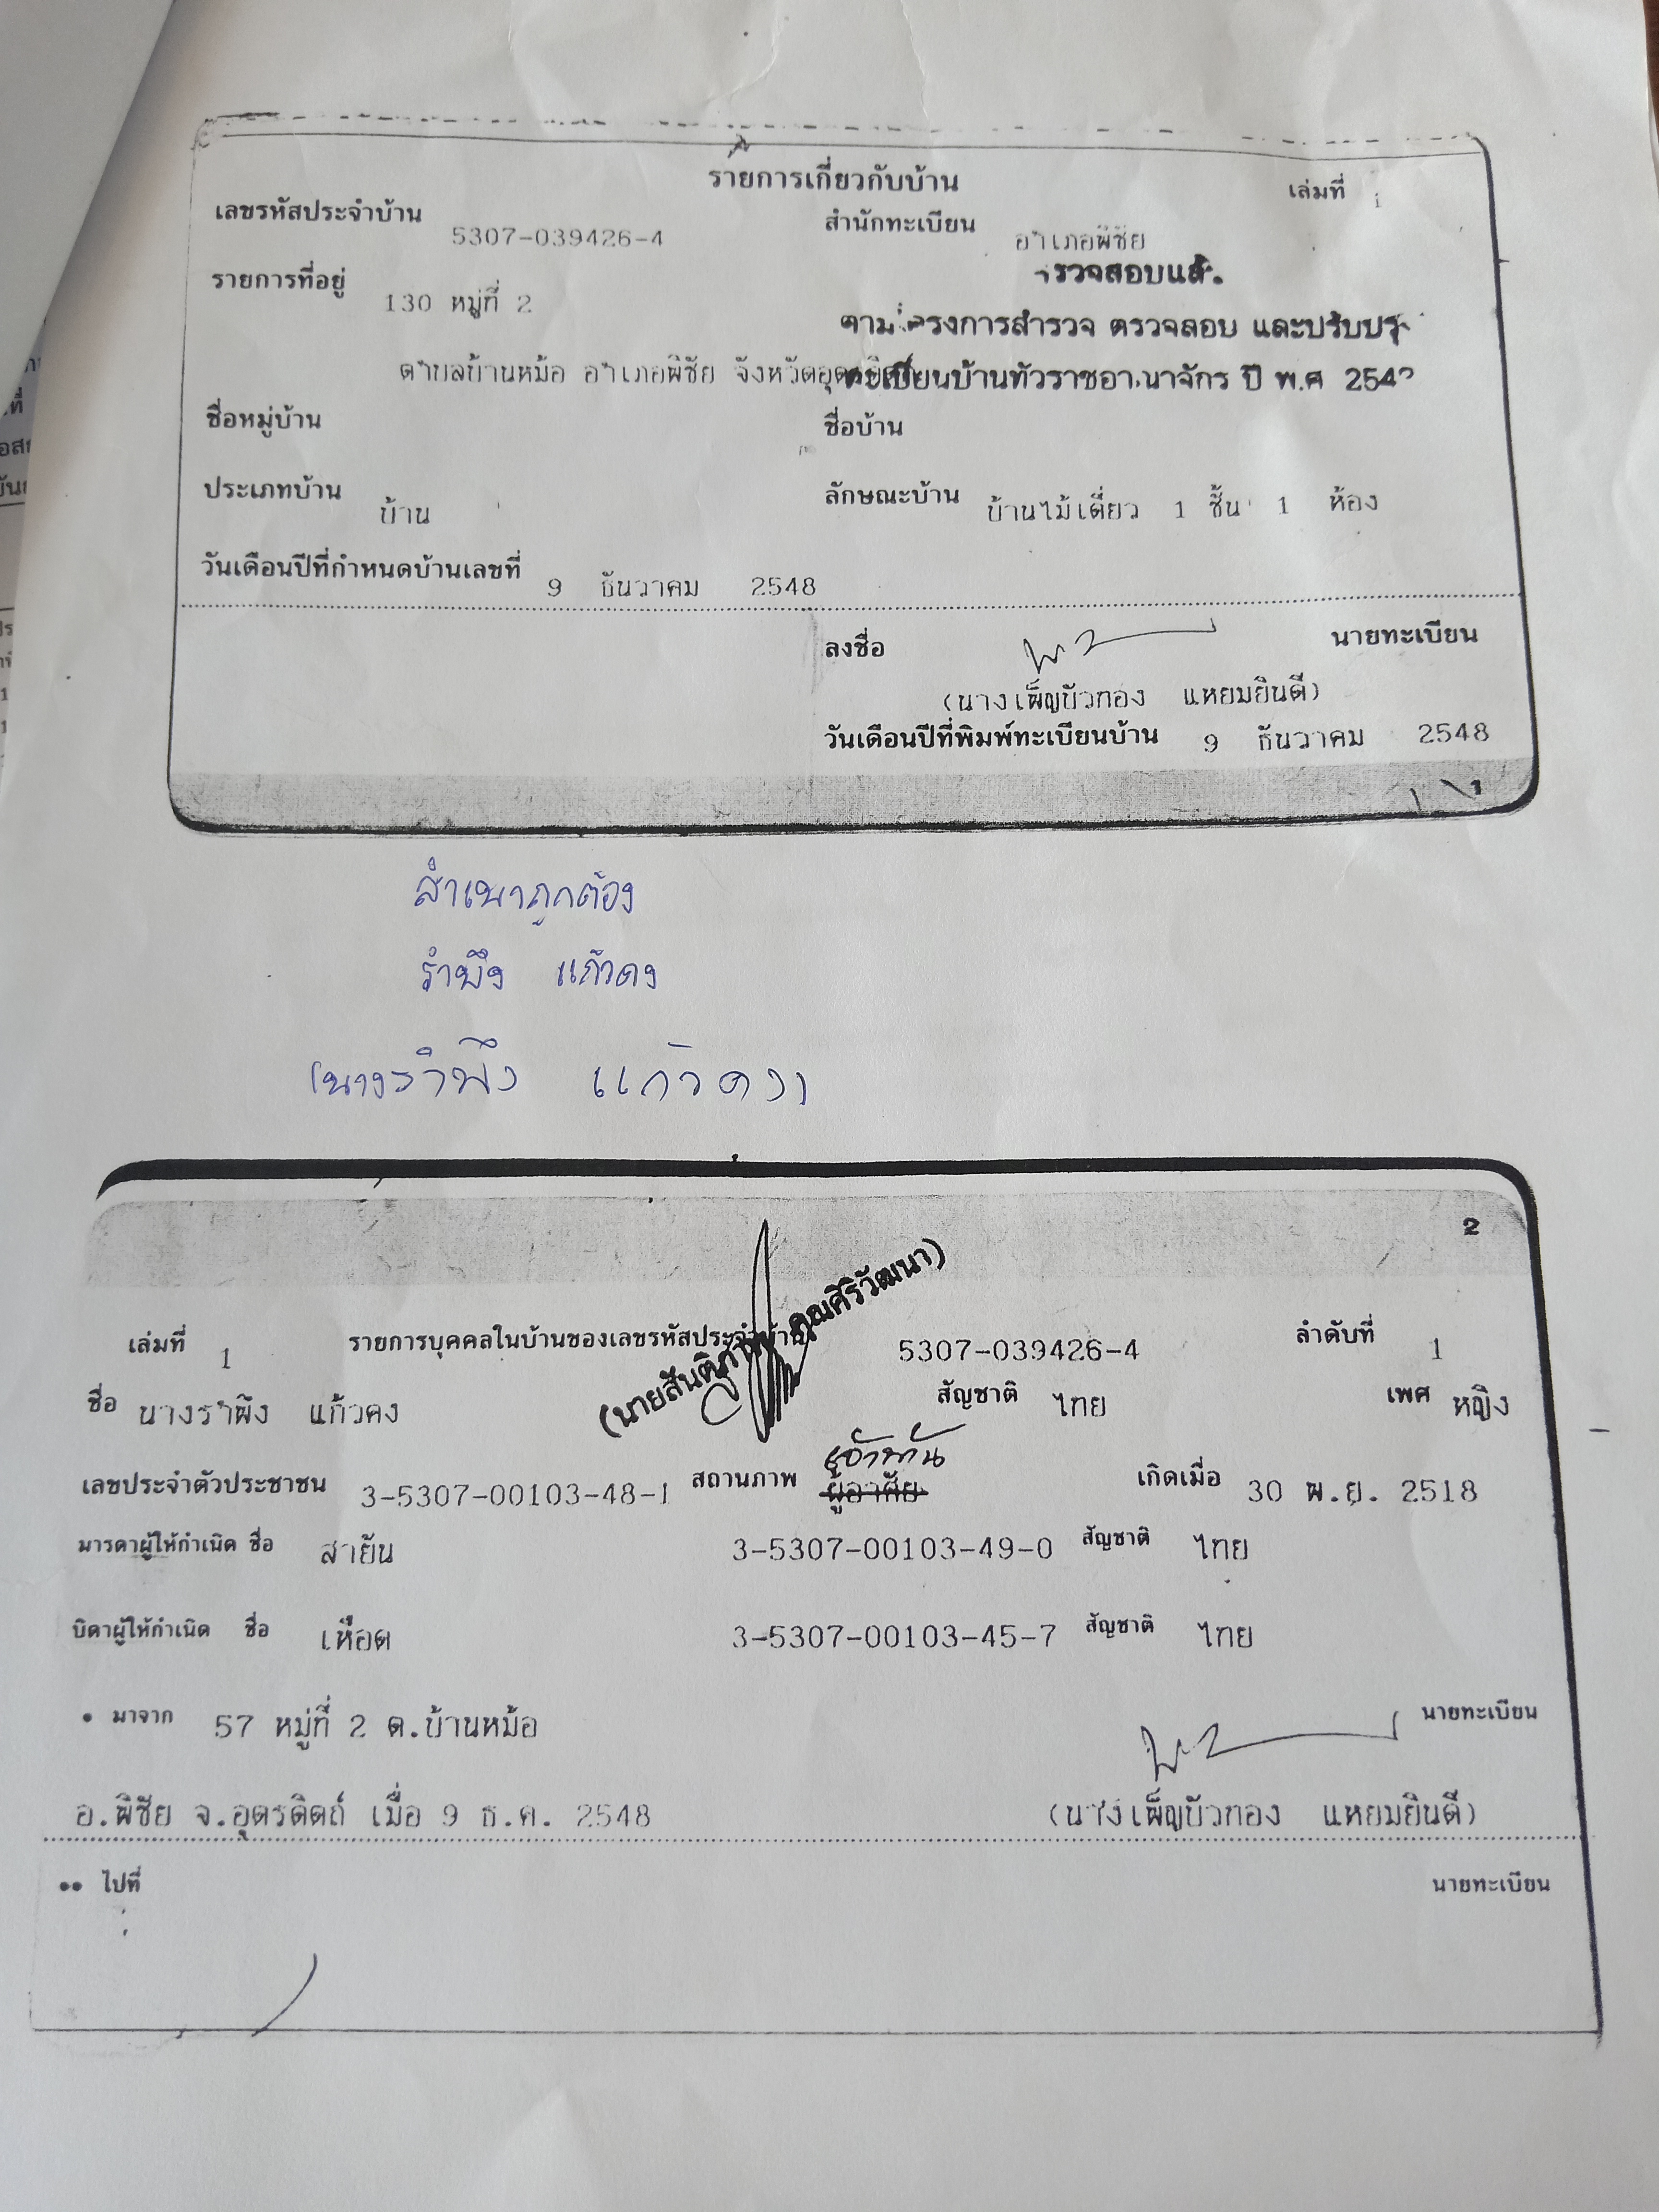 รายการเกี่ยวกับบ้าน เล่มที่ 1
เลขรหัสประจำบ้าน 5307-039426-4 สำนักทะเบียน อำเภอพิชัย
รายการที่อยู่ 130 หมู่ที่ 2
ตำบลบ้านหม้อ อำเภอพิชัย จังหวัดอุตรดิตถ์
ตรวจสอบแล้ว
ตามโครงการสำรวจ ตรวจสอบ และปรับปรุง
ทะเบียนบ้านทั่วราชอาณาจักร ปี พ.ศ
ชื่อหมู่บ้าน ชื่อบ้าน
ประเภทบ้าน บ้าน ลักษณะบ้าน บ้านไม้เดี่ยว 1 ชั้น 1 ห้อง
วันเดือนปีที่กำหนดบ้านเลขที่ 9 ธันวาคม 2548
ลงชื่อ นายทะเบียน
(นางเพ็ญบัวทอง แหยมยินดี)
วันเดือนปีที่พิมพ์ทะเบียนบ้าน 9 ธันวาคม 2548
1
สำเนาถูกต้อง
รำพึง แก้วคง
(นางรำพึง แก้วคง)
2
เล่มที่ 1 รายการบุคคลในบ้านของเลขรหัสประจำบ้าน 5307-039426-4 ลำดับที่ 1
ชื่อ นางรำพึง แก้วคง สัญชาติ ไทย เพศ หญิง
คุณศิริวัฒนา)
เจ้าบ้าน
เลขประจำตัวประชาชน 3-5307-00103-48-1 สถานภาพ ผู้อาศัย เกิดเมื่อ 30 พ.ย. 2518
มารดาผู้ให้กำเนิด ชื่อ สายัน 3-5307-00103-49-0 สัญชาติ ไทย
บิดาผู้ให้กำเนิด ชื่อ เหือด 3-5307-00103-45-7 สัญชาติ ไทย
• มาจาก 57 หมู่ที่ 2 ต.บ้านหม้อ นายทะเบียน
อ.พิชัย จ.อุตรดิตถ์ เมื่อ 9 ธ.ค. 2548 (นางเพ็ญบัวทอง แหยมยินดี)
•• ไปที่ นายทะเบียน